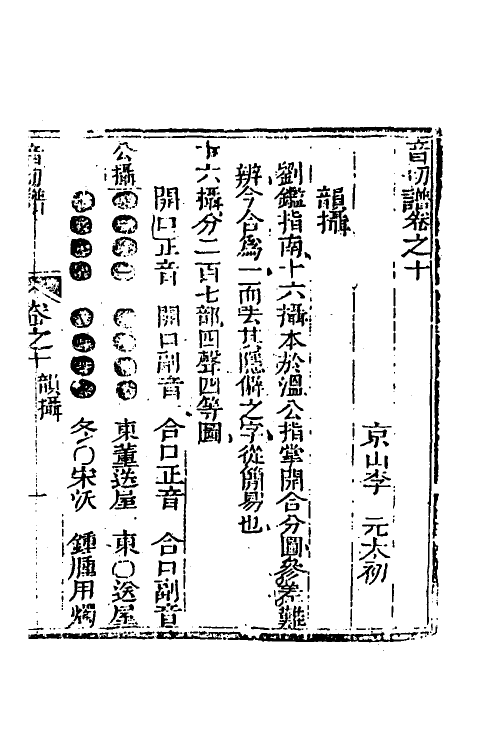 音切譜卷之十
京山李　元太初
韻攝
劉鑑指南十六攝本於溫公指掌開合分圖參差難
辨今合爲一而去其隱僻之字從簡易也
十六攝分二百七部四聲四等圖
開口正音　開口副音　合口正音　合口副音
公攝●●●●　●●●●　東董送屋　東〇送屋
●●●●　●●●●　冬〇宋沃　鍾腫用燭
音切譜　卷之十　韻攝　一